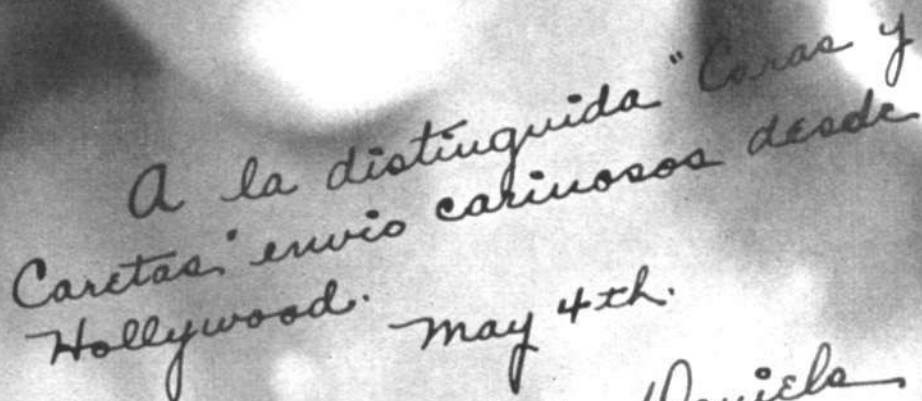 A la distinguida "Caras y
Caretas" envio carinosos desde
Hollywood.
May 4th.
Daniels